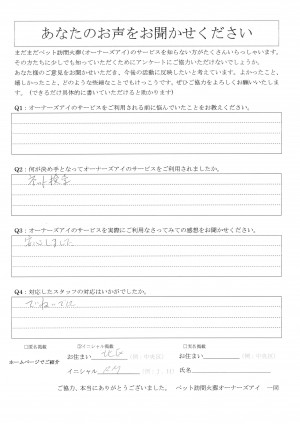 あなたのお声をお聞かせください
まだまだペット訪問火葬(オーナーズアイ)のサービスを知らない方がたくさんいらっしゃいます。
その方たちに少しでも知っていただくためにアンケートにご協力いただけないでしょうか。
あなた様のご意見をお聞かせいただき、今後の活動に反映したいと考えています。よかったこと、
嬉しかったこと、どのような些細なことでもけっこうです。ぜひご協力をよろしくお願いいたします。(できるだけ具体的に書いていただけると助かります)
Q1：オーナーズアイのサービスをご利用される前に悩んでいたことをお教えください。
Q2：何が決め手となってオーナーズアイのサービスをご利用されましたか。
ネット検索
Q3：オーナーズアイのサービスを実際にご利用なさってみての感想をお聞かせください。
安心しました
Q4：対応したスタッフの対応はいかがでしたか。
ていねいでした
□匿名掲載 ☑イニシャル掲載 □実名掲載
ホームページでご紹介
お住まい 北区 (例：中央区) お住まい (例：中央区)
イニシャル 氏名
ご協力、本当にありがとうございました。 ペット訪問火葬オーナーズアイ 一同